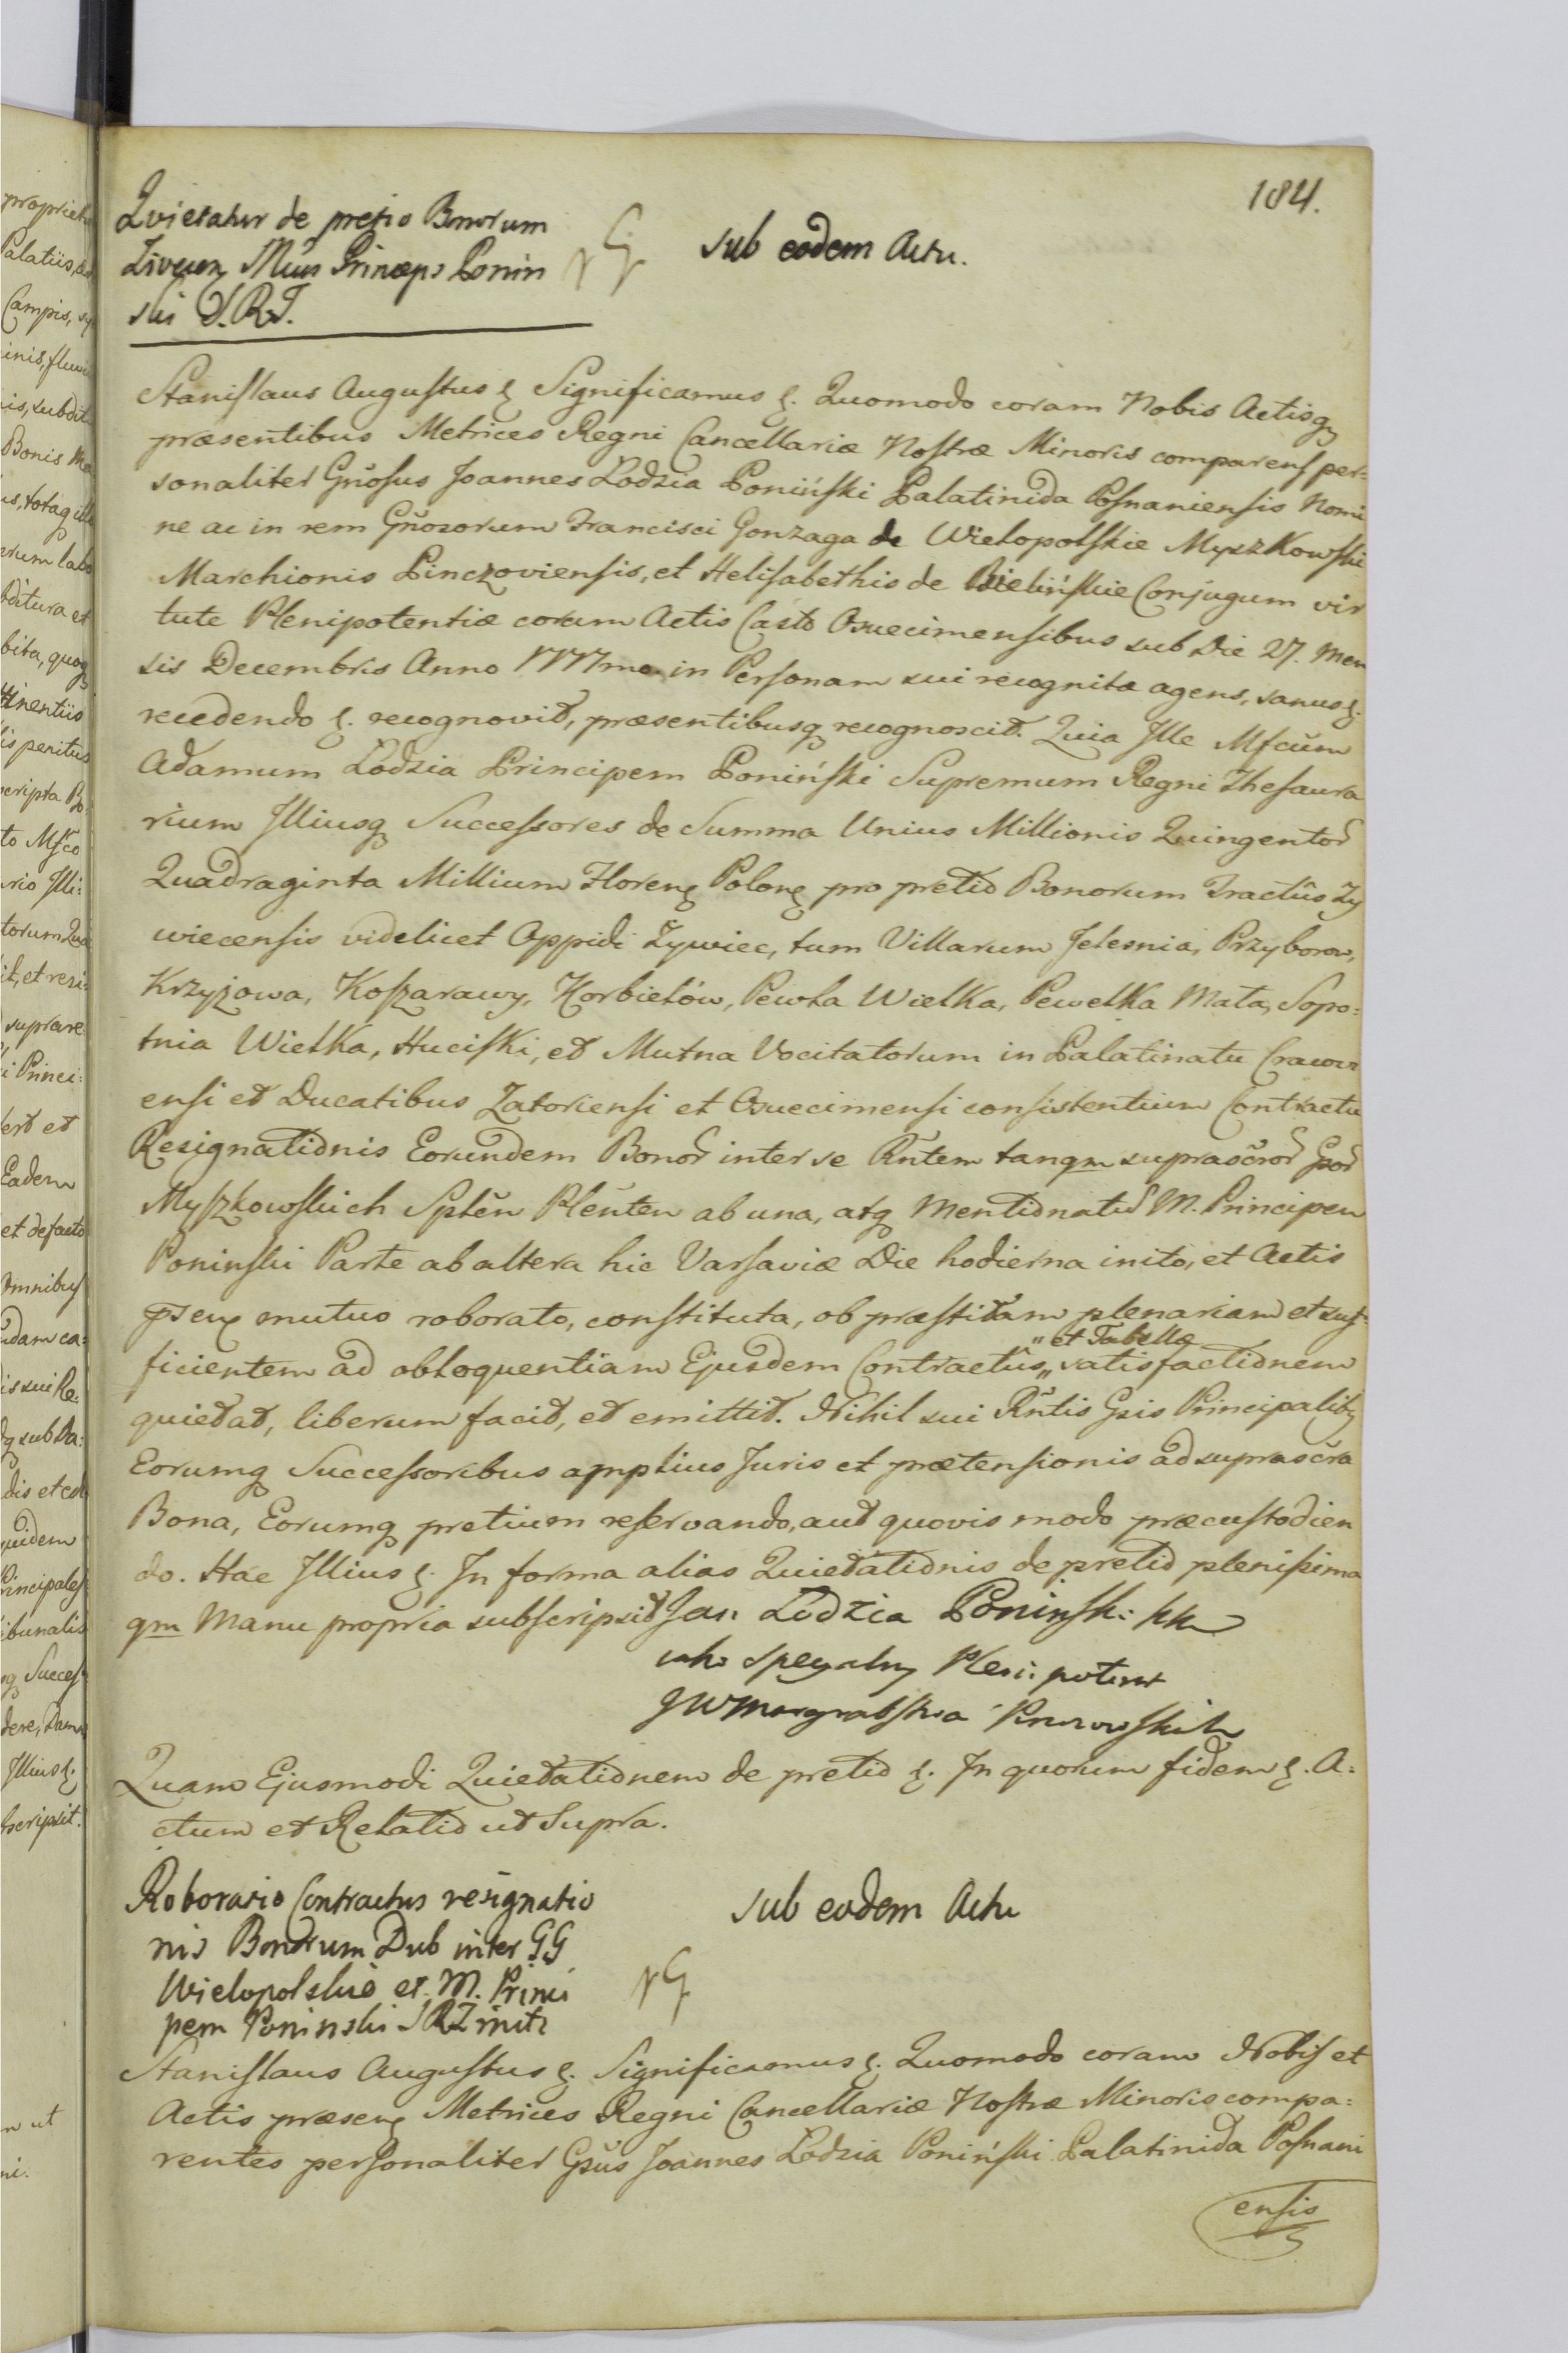 184.
Quietatur de pretio Bonorum
Zivecen Mcus Princeps Ponin
ski S.R.T.
Sub eodem Actu.
Stanislaus Augustus &. Significamus &. Quomodo coram Nobis Actisq
præsentibus Metrices Regni Cancellariæ Nostræ Minoris comparens per=
sonaliter Gñosus Joannes Łodzia Poniński Palatinida Posnaniensis Nomi
ne ac in rem Gñosorum Francisci Gonzaga de Wielopolskie Myszkowski
Marchionis Pinczoviensis, et Helisabethis de Bielińskie Conjugum vir
tute Plenipotentiæ coram Actis Castr Osuecimensibus sub Die 27. Men
sis Decembris Anno 1777mo in Personam sui recognitæ agens, sanus &.
recedendo &. recognovit, præsentibusq recognoscit. Quia Ille Mfcum
Adamum Łodzia Principem Poniński Supremum Regni Thesaura
rium Illiusq Successores de Summa Unius Millionis Quingentor
Quadraginta Millium Floren Polon pro pretio Bonorum Tractûs Zy
wiecensis videlicet Oppidi Zywiec, tum Villarum Jelesnia, Przyborow,
Krzyżowa, Koszarawy, Korbielów, Pewla Wielka, Pewelka Mała, Sopo=
tnia Wielka, Huciski, et Mutna Vocitatorum in Palatinatu Cracovi
ensi et Ducatibus Zatoriensi et Osuecimensi consistentium Contractu
Resignationis Eorundem Bonor inter se Rñtem tanqm suprascror Gsor
Myszkowskich Splěn Pleñten ab una, atq Mentionatū M. Principem
Poninski Parte ab altera hic Varsaviæ Die hodierna inito, et Actis
pseñ mutuo roborato, constituta, ob præstitam plenariam et suf=
" et Tabellæ
ficientem ad obloquentiam Ejusdem Contractûs,, satisfactionem
quietat, liberum facit, et emittit. Nihil sui Rñtis Gsis Principalibq
Eorumq Successoribus amplius Juris et prætensionis ad suprascra
Bona, Eorumq pretium reservando, aut quovis modo præcustodien
do. Hac Illius &. In forma alias Quietationis de pretio plenissima
qm Manu propria subscripsit Jan Łodzia Poninski
jako specyalny Plenipotent
JW Margrabstwa
Quam Ejusmodi Quietationem de pretio &. In quorum fidem &. A=
ctum et Relatio ut Supra.
Roboratio Contractus resignatio
nis Bonorum Dub inter GG
Wielopolskie et M. Princi
pem Poninski SRT initi
Sub eodem Actu
Stanislaus Augustus &. Significamus &. Quomodo coram Nobis et
Actis præsen Metrices Regni Cancellariæ Nostræ Minoris compa=
rentes personaliter Gsus Joannes Łodzia Poniński Palatinida Posnani
ensis